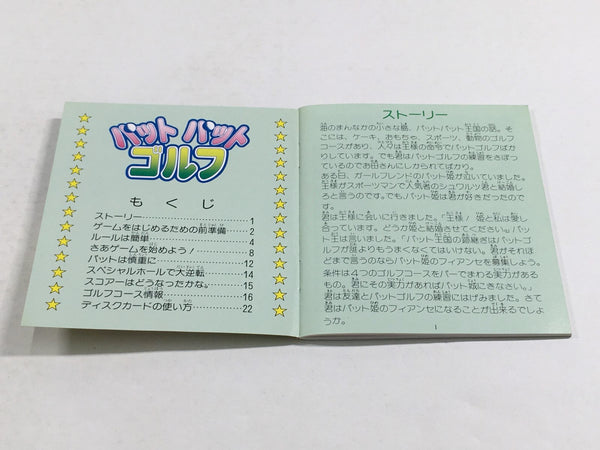 パット パット
ゴルフ
もくじ
ストーリー……………………1
ゲームをはじめるための前準備……2
ルールは簡単……………………4
さあゲームを始めよう!……………8
パットは慎重に……………………12
スペシャルホールで大逆転…………14
スコアーはどうなったかな。…………15
ゴルフコース情報……………………16
ディスクカードの使い方……………22
ストーリー
海のまんなかの小さな島、パットパット王国の話。そ
こには、ケーキ、おもちゃ、スポーツ、動物のゴルフ
コースがあり、人々は王様の命令でパットゴルフばか
りしています。でも君はパットゴルフの練習をさぼっ
ているのでお母さんにしかられてばかり。
ある日、ガールフレンドのパット姫が泣いていました。
王様がスポーツマンで人気者のシュワルツ君と結婚し
ろと言うのです。でも、パット姫は君が好きだったので
す。
君は王様に会いに行きました。「王様! 姫と私は愛し
合っています。どうか姫と結婚させてください。」パッ
ト王は言いました。「パット王国の跡継ぎはパットゴ
ルフが誰よりもうまくなくてはいけない。君がそれほ
どまで言うのならパット姫のフィアンセを募集しよう。
条件は4つのゴルフコースをパーでまわる実力がある
もの。君にその実力があればパット姫にきなさい。」
君は友達とパットゴルフの練習にはげみました。さて
君はパット姫のフィアンセになることが出来るでしょ
うか。
1